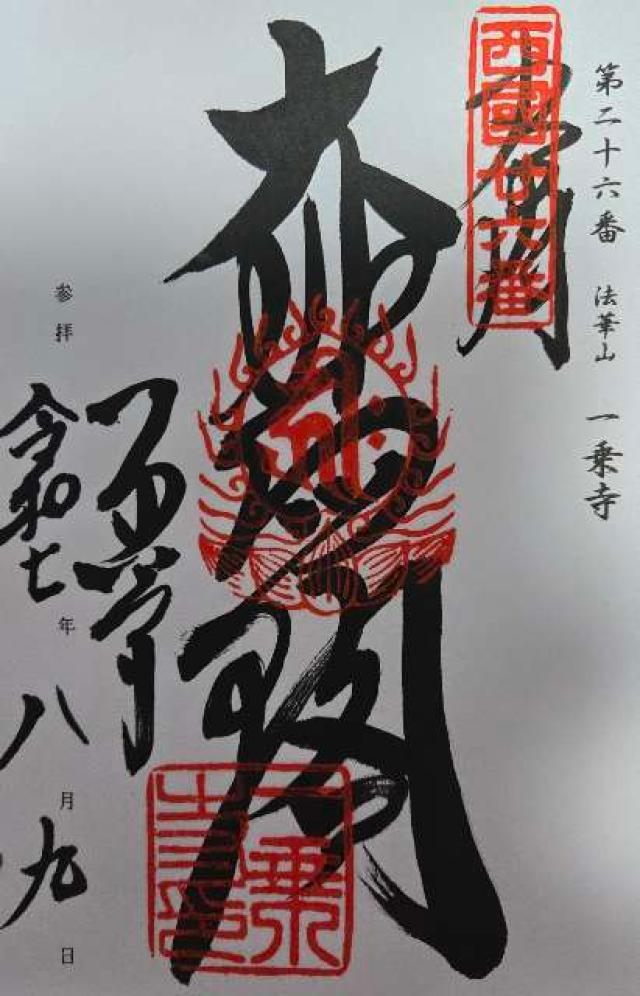 第二十六番 法華山 一乗寺
奉拝
西國廿六番
大悲閣
一乗寺
参拝
令和七年八月九日
一乗寺印